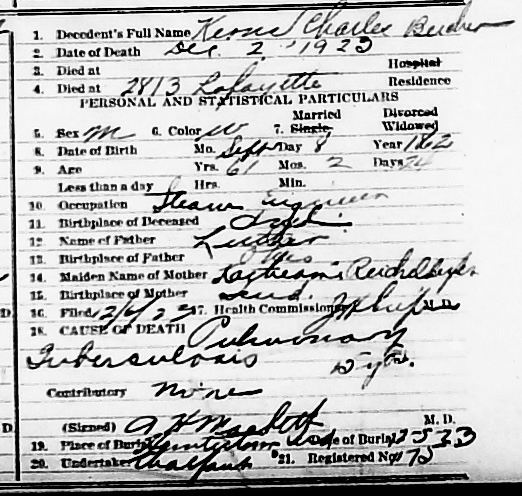 1. Decedent's Full Name Charles
2. Date of Death Dec. 2, 1923
3. Died at Hospital
4. Died at 2813 Lafayette Residence
PERSONAL AND STATISTICAL PARTICULARS
Married Divorced
5. Sex M 6. Color W 7. Single Widowed
8. Date of Birth Mo. Sept Day 8 Year 1862
9. Age Yrs. 61 Mos. 2 Days 24
Less than a day Hrs. Min.
10. Occupation Steam Engineer
11. Birthplace of Deceased Ind.
12. Name of Father Luther
13. Birthplace of Father
14. Maiden Name of Mother
15. Birthplace of Mother Ind.
16. Filed 17. Health Commissioner M. D.
18. CAUSE OF DEATH Pulmonary
Tuberculosis 5 yrs.
Contributory None
(Signed) M. D.
19. Place of Burial Ind Date of Burial 12 5 23
20. Undertaker 21. Registered No.
D.
D